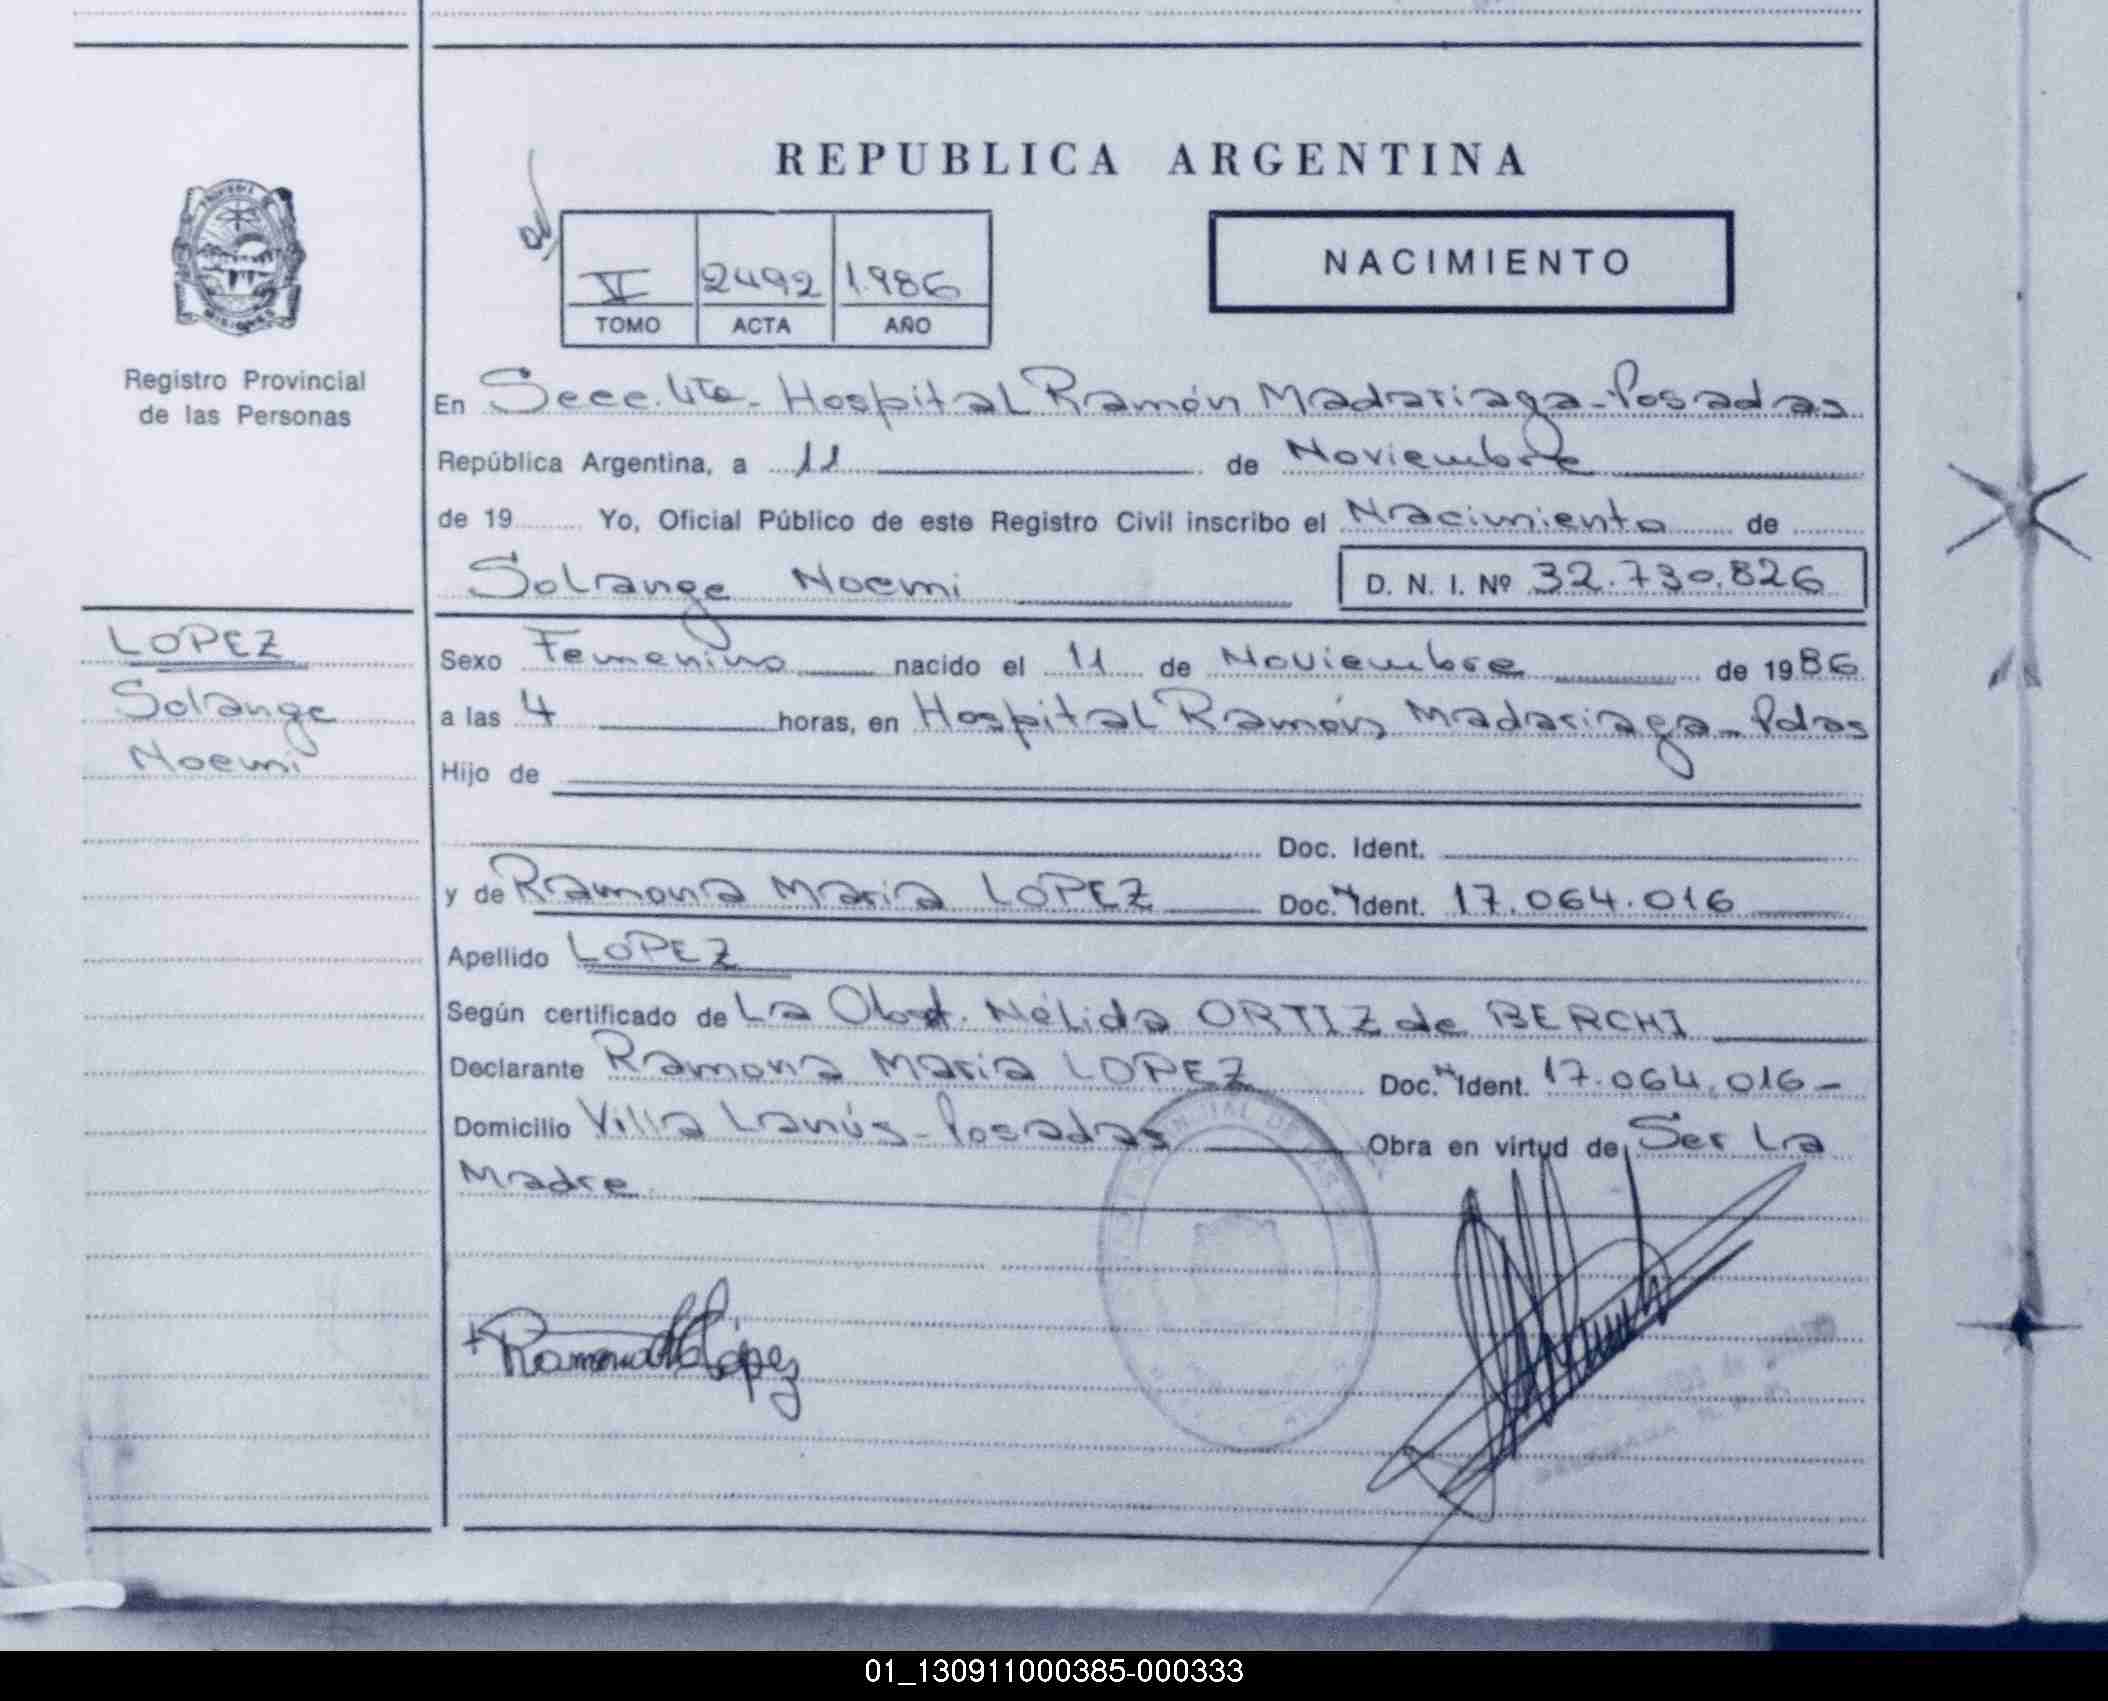 REPUBLICA ARGENTINA
NACIMIENTO
V 2492 1.986
TOMO ACTA AÑO
MISIONES
Registro Provincial
de las Personas
En Secc. 4ta- Hospital Ramón Madariaga-Posadas
República Argentina, a 11 de Noviembre
de 19 Yo, Oficial Público de este Registro Civil inscribo el Nacimiento de
Solange Noemi D. N. I. Nº 32.730.826
LOPEZ
Solange
Noemi
Sexo Femenino nacido el 11 de Noviembre de 1986
a las 4 horas, en Hospital Ramón Madariaga-Pdas
Hijo de
Doc. Ident.
y de Ramona Maria LOPEZ Doc. Ident. 17.064.016
Apellido LOPEZ
Según certificado de La Obst. Nélida ORTIZ de BERCHI
Declarante Ramona Maria LOPEZ Doc. Ident. 17.064.016-
Domicilio Villa Lanús-Posadas Obra en virtud de Ser La
Madre
Ramona M López
01_130911000385-000333